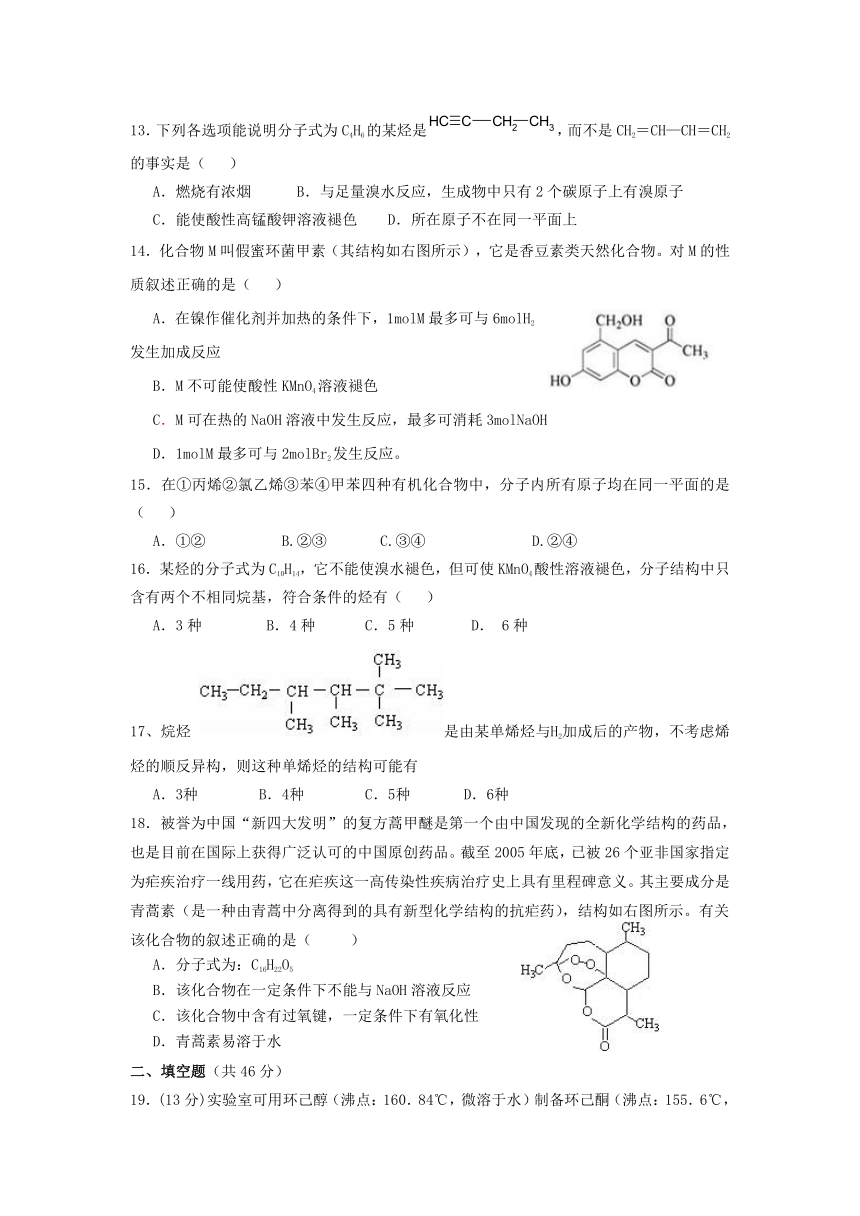 13.下列各选项能说明分子式为 C₄H₆ 的某烃是HC≡C—CH₂—CH₃,而不是 CH₂=CH—CH=CH₂
的事实是( )
A.燃烧有浓烟 B.与足量溴水反应,生成物中只有 2 个碳原子上有溴原子
C.能使酸性高锰酸钾溶液褪色 D.所在原子不在同一平面上
14.化合物 M 叫假蜜环菌甲素(其结构如右图所示),它是香豆素类天然化合物。对 M 的性
质叙述正确的是( )
A.在镍作催化剂并加热的条件下,1molM 最多可与 6molH₂
发生加成反应
B.M 不可能使酸性 KMnO₄ 溶液褪色
C.M 可在热的 NaOH 溶液中发生反应,最多可消耗 3molNaOH
D.1molM 最多可与 2molBr₂ 发生反应。
CH₂OH O
CH₃
HO O O
15.在①丙烯②氯乙烯③苯④甲苯四种有机化合物中,分子内所有原子均在同一平面的是
( )
A.①② B.②③ C.③④ D.②④
16.某烃的分子式为 C₁₀H₁₄,它不能使溴水褪色,但可使 KMnO₄ 酸性溶液褪色,分子结构中只
含有两个不相同烷基,符合条件的烃有( )
A.3 种 B.4 种 C.5 种 D. 6 种
CH₃
CH₃—CH₂—CH—CH—C—CH₃
CH₃ CH₃ CH₃
17、烷烃 是由某单烯烃与H₂加成后的产物,不考虑烯
烃的顺反异构,则这种单烯烃的结构可能有
A.3种 B.4种 C.5种 D.6种
18.被誉为中国“新四大发明”的复方蒿甲醚是第一个由中国发现的全新化学结构的药品,
也是目前在国际上获得广泛认可的中国原创药品。截至 2005 年底,已被 26 个亚非国家指定
为疟疾治疗一线用药,它在疟疾这一高传染性疾病治疗史上具有里程碑意义。其主要成分是
青蒿素(是一种由青蒿中分离得到的具有新型化学结构的抗疟药),结构如右图所示。有关
该化合物的叙述正确的是( )
A.分子式为:C₁₆H₂₂O₅
B.该化合物在一定条件下不能与 NaOH 溶液反应
C.该化合物中含有过氧键,一定条件下有氧化性
D.青蒿素易溶于水
CH₃
H₃C O—O
O
O
CH₃
O
二、填空题(共 46 分)
19.(13 分)实验室可用环己醇(沸点:160.84℃,微溶于水)制备环己酮(沸点:155.6℃,